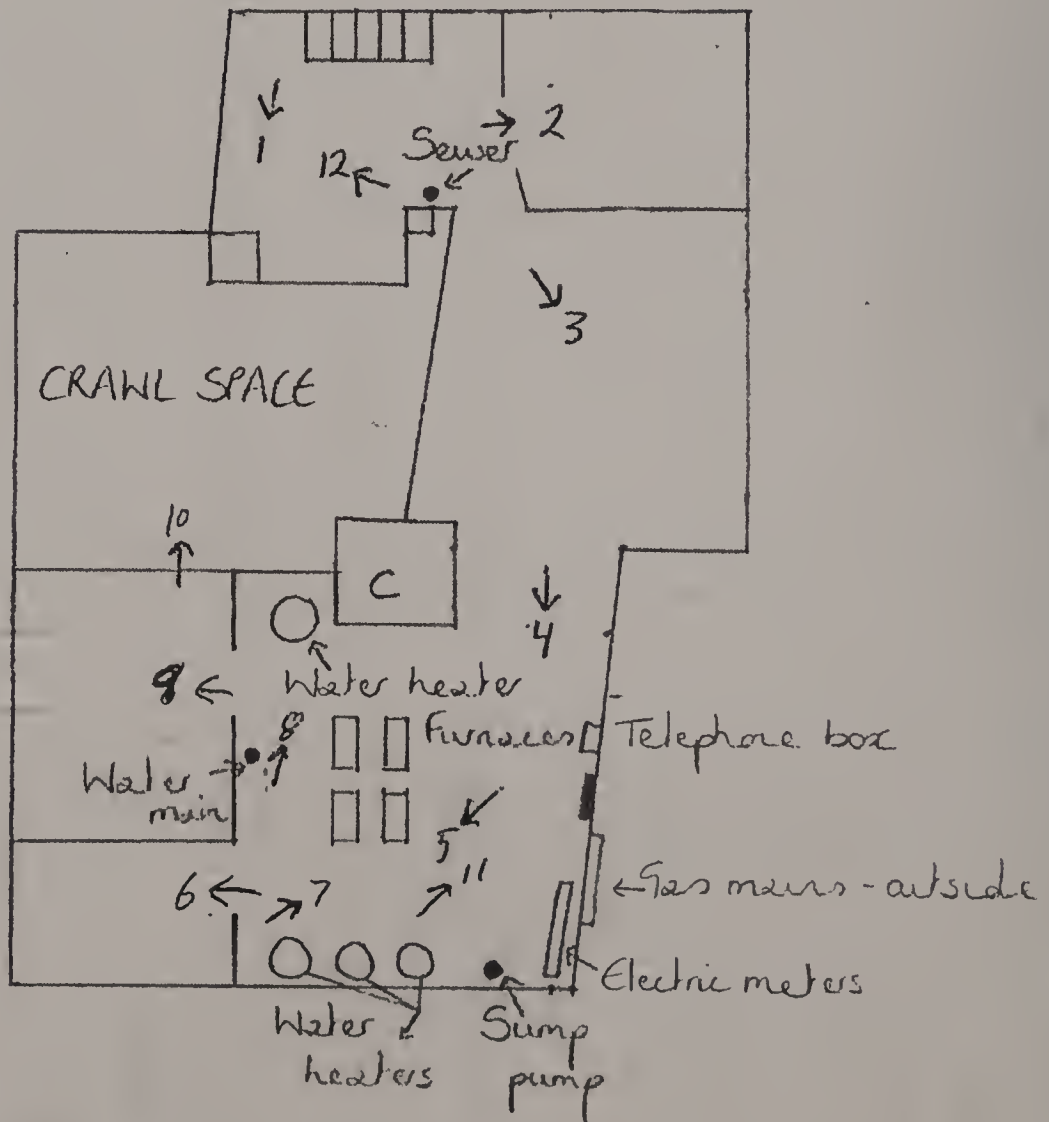 1
2
12
Sewer
3
CRAWL SPACE
10
C
4
9
Water heater
8
Furnaces
Telephone box
Water
main
5
6
7
11
Gas mains - outside
Electric meters
Water
heaters
Sump
pump